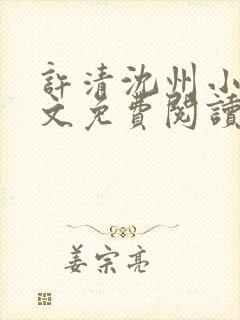 許清沈州小
文免費閱讀
姜宗亮